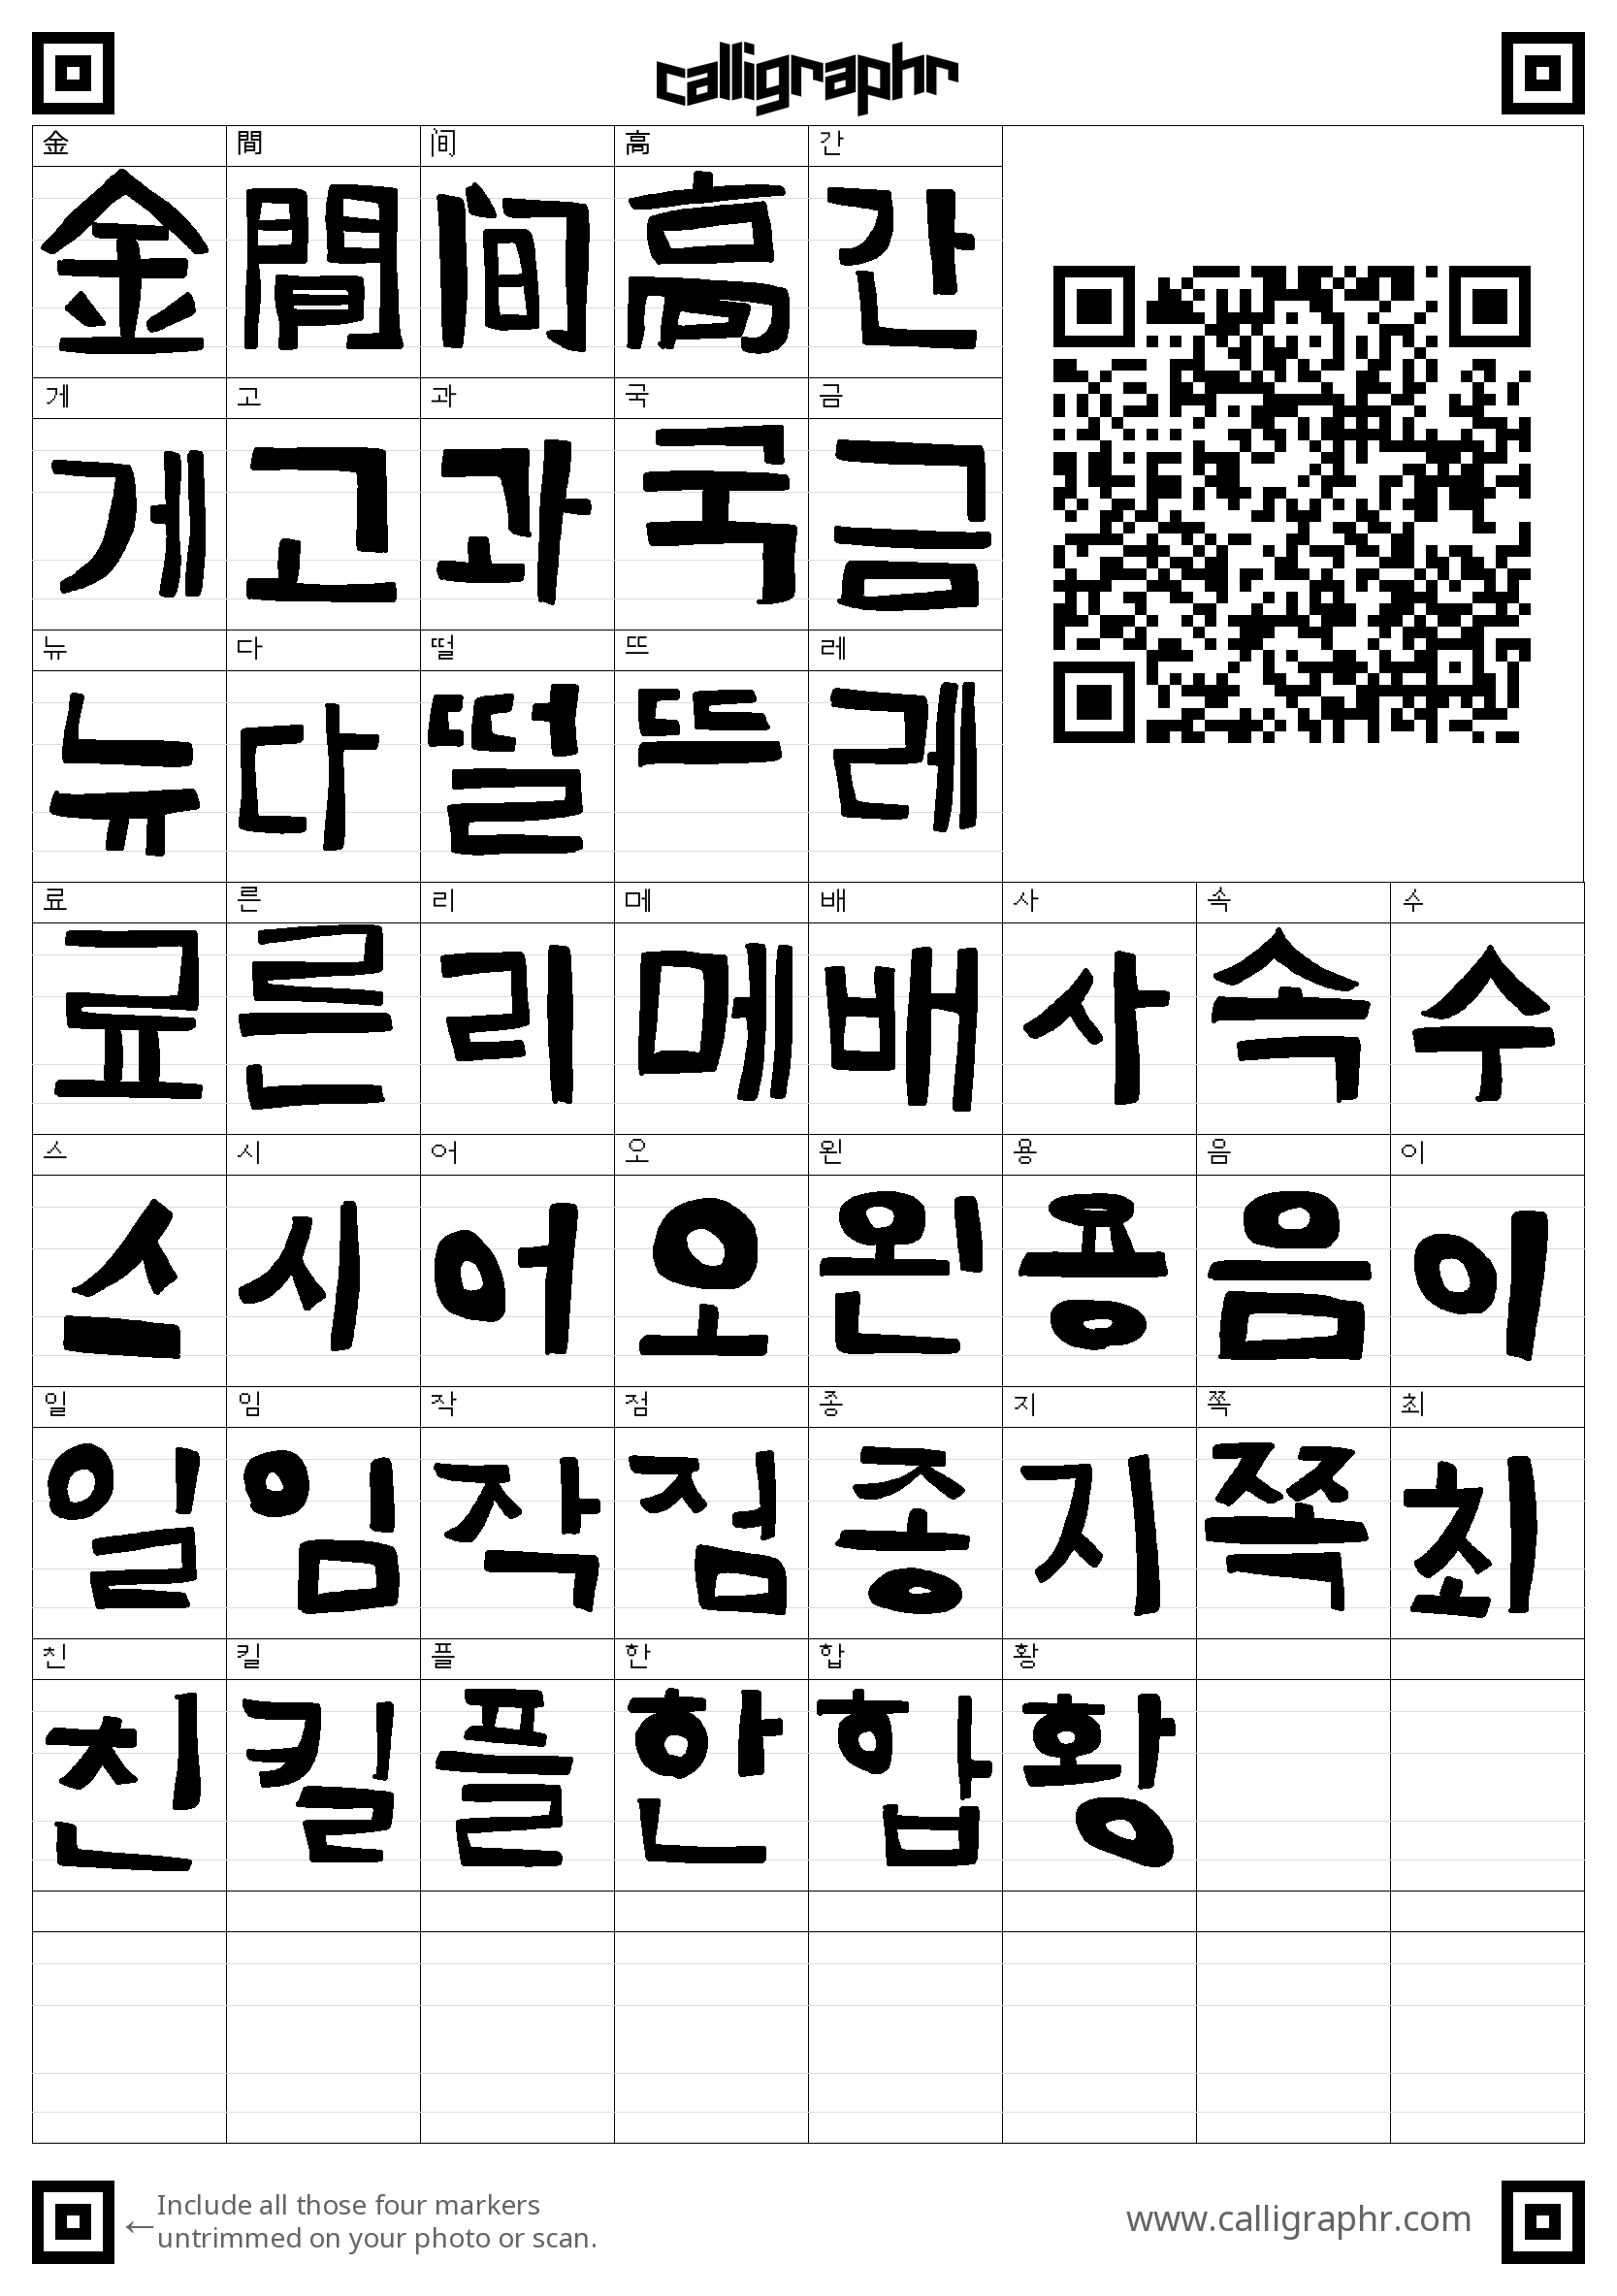 calligraphr
金 間 间 高 간
金 間 间 高 간
게 고 과 국 금
게 고 과 국 금
뉴 다 떨 뜨 레
뉴 다 떨 뜨 레
료 른 리 메 배 사 속 수
료 른 리 메 배 사 속 수
스 시 어 오 왼 용 음 이
스 시 어 오 왼 용 음 이
일 임 작 점 종 지 쪽 최
일 임 작 점 종 지 쪽 최
친 킬 플 한 합 황
친 킬 플 한 합 황
←Include all those four markers
untrimmed on your photo or scan.
www.calligraphr.com